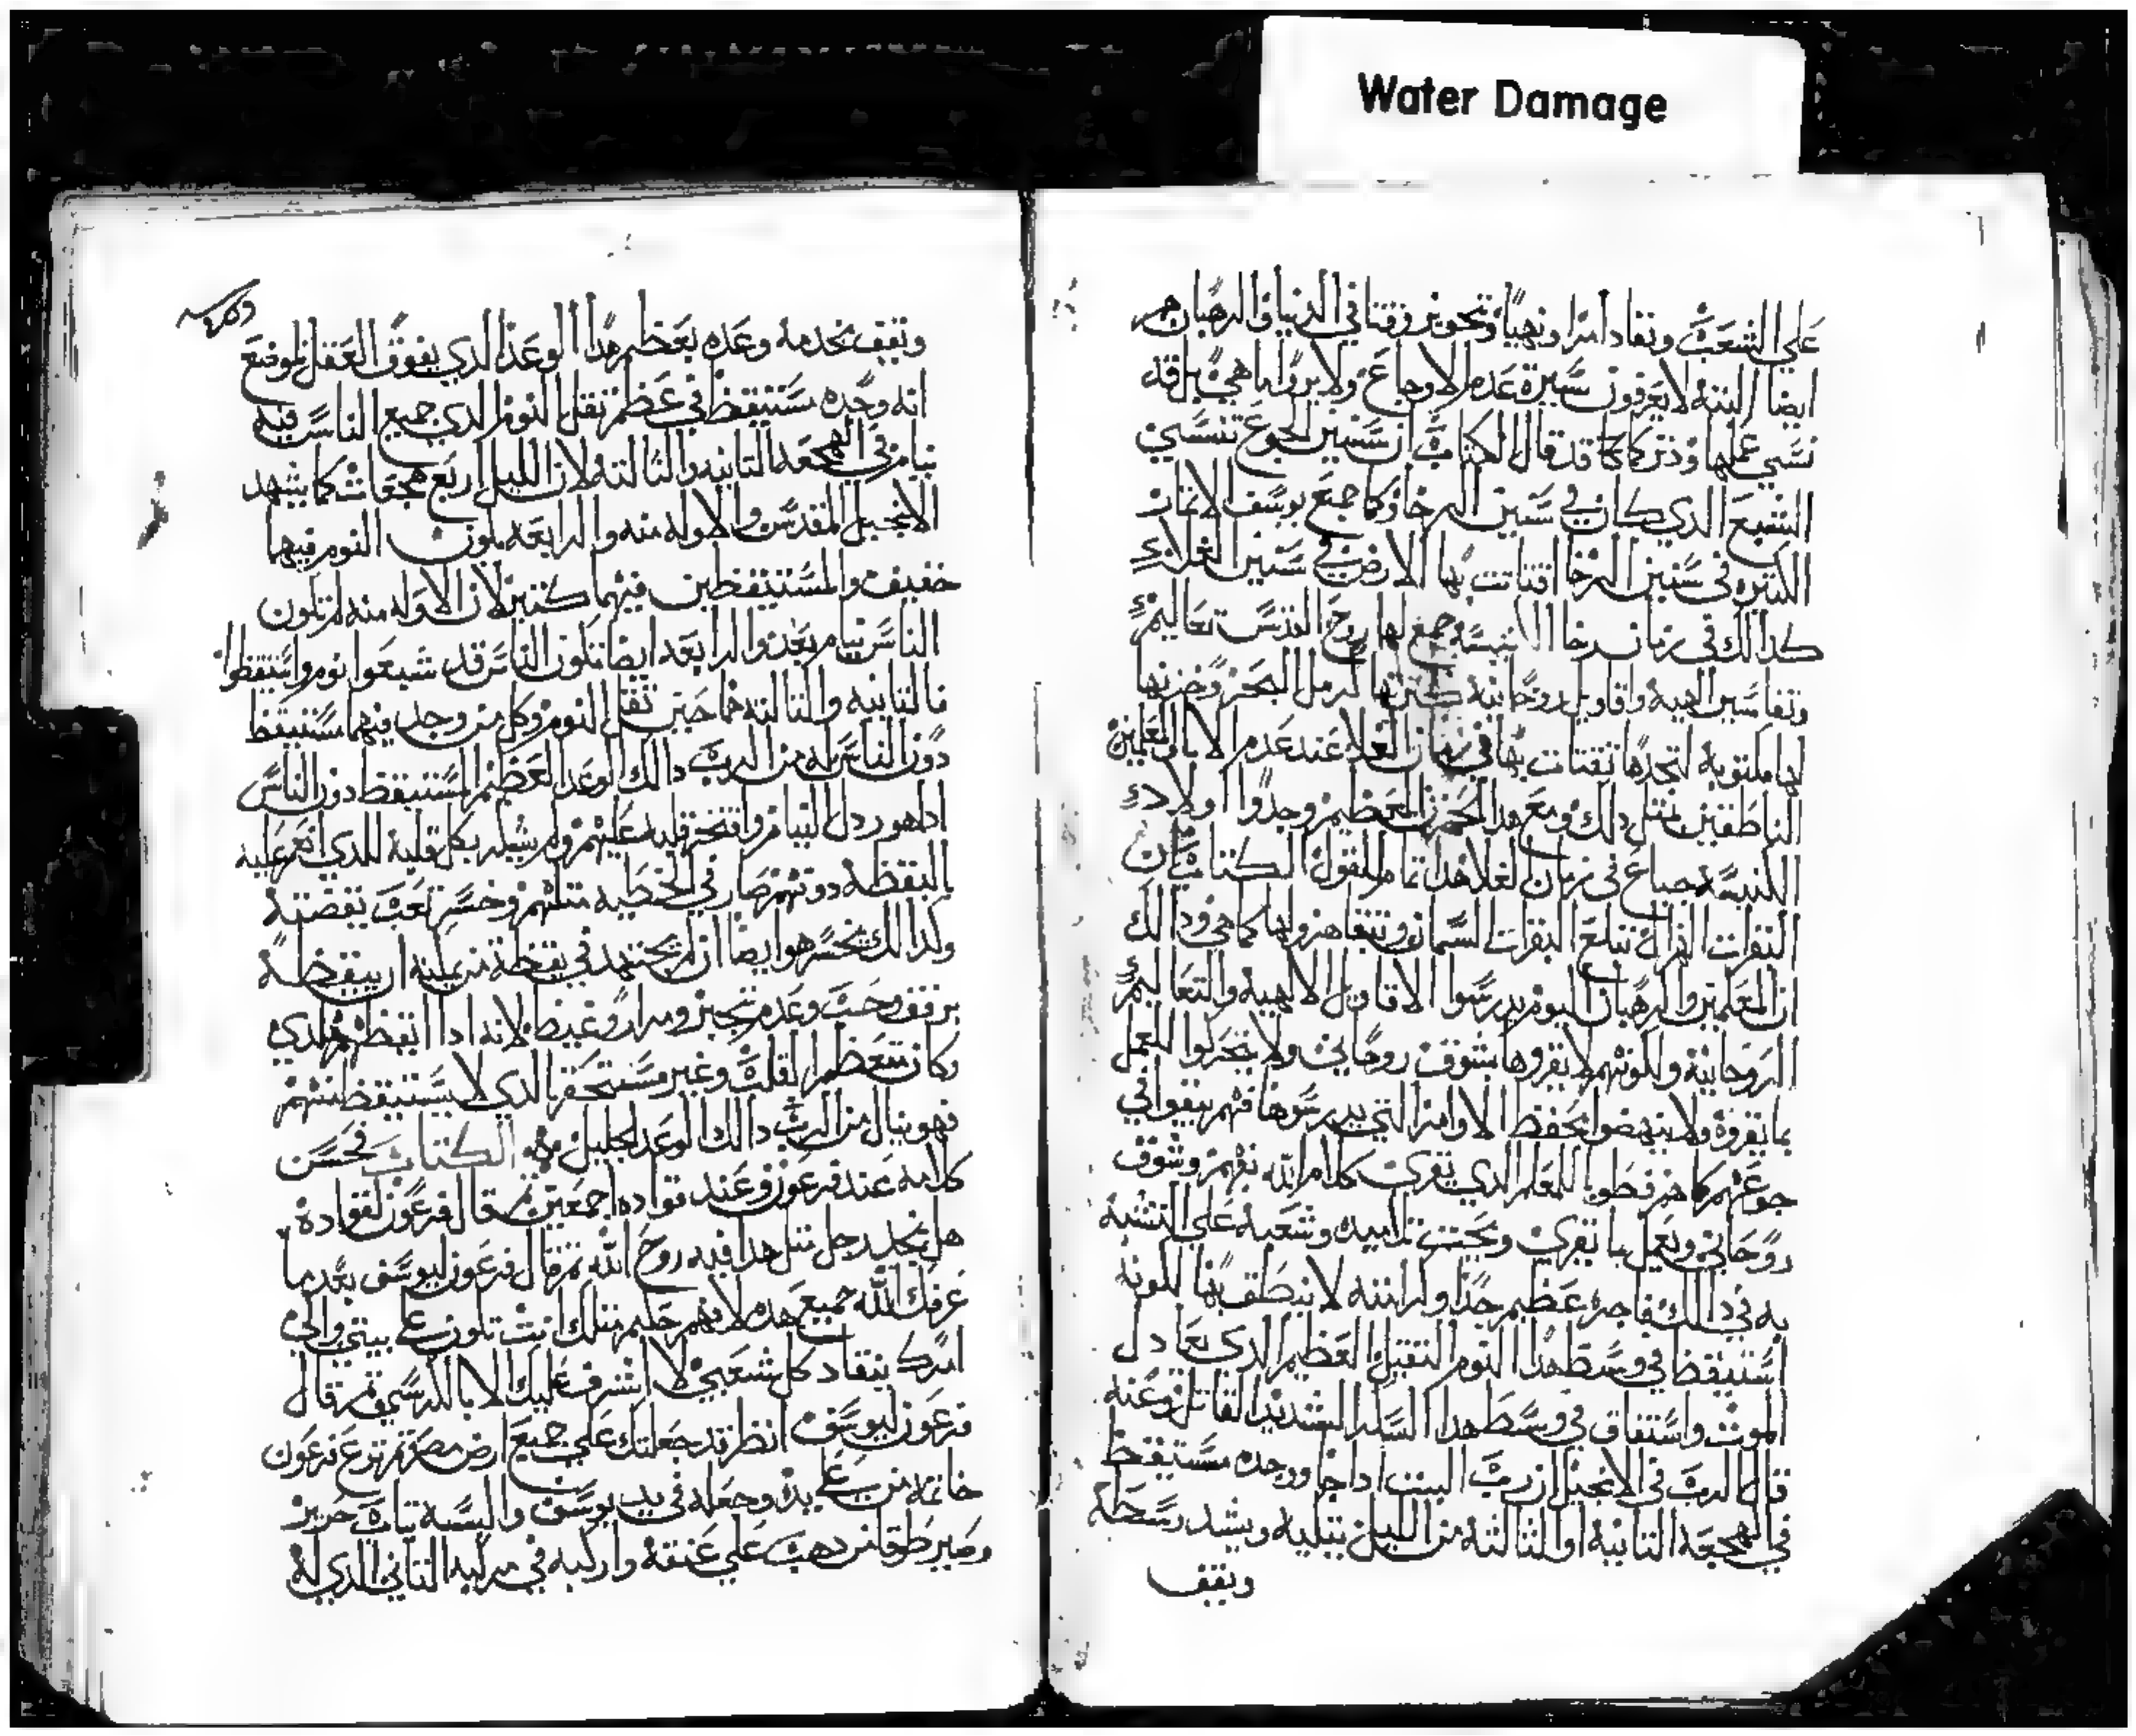 Water Damage
على الشعب ونفاد امرا ونهيا وتحويز وقتا في الدنيا والرهبان هم
ايضا البتة لا يعرفون سيرة عدم الاوجاع ولا يروا ما هي بل قد
نسي عملها وذكرها كما قد قال الكتاب ان سنين الجوع تنسي
الشبع الذي كان في سنين الرخا وكما جمع يوسف الاثمار
الكتيره في سنين الرخا اقتاتت بها الارض في سنين الغلاء
كدالك في زمان رخا الكنيسة جمع لها روح القدس تعاليم
وتفاسير الهيه واقاويل روحانيه كترتها كرمل البحر وخزنها
لها مكتوبه لتجدها تقتات بها في زمان الغلا عند عدم الابا والمعلمين
الناطقين بمثل دلك ومع هدا الخزن العظيم وجدوا اولادء
الكنيسة جياع في زمان الغلا هدا تمام لقول الكتاب ان
البقرات الهزالة تبلع البقرات السمان وتبقا هزولها كما هي ودالك
ان المعلمين والرهبان اليوم يدرسوا الاقاويل الالهيه والتعاليم
الروحانية ولكونهم لا يقروها بشوق روحاني ولا يتحركوا للعمل
بما يقروه ولا ينهضوا لحفظ الاوامر التي يدرسوها فهم يبقوا في
جوعهم كما هم فطوبا للمعلم الذي يقري كلام الله بفهم وشوق
روحاني ويعمل بما يقري ويحتت تلاميده وشعبه على التشبه
به في دالك فاجره عظيم جدا وكرامته لا ينطق بها لكونه
استيقظ في وسط هدا النوم التقيل العظيم الدي يعادل
الموت واستفاق في وسط هدا السكر الشديد القاتل وعنه
قال الرب في الانجيل ان رب البيت ادا جا ووجده مستيقظ
في الهجعة التانية او التالتة من الليل يتكيه ويشد وسطه
ويقف
ويقف يخدمه وعده بعظم هدا الوعد الدي يفوق العقل لموضع
انه وحده مستيقظ في عظم تقل النوم الدي جميع الناس فيه
نيام في الهجعة التانيه والتالتة لان الليل اربع هجعات كما يشهد
الانجيل المقدس والاوله منه والرابعه يكون النوم فيها
خفيف والمستيقظين فيهما كتير لان الاوله منه لم تكون
الناس نيام بعد والرابعه ايضا تكون الناس قد شبعوا نوم واستيقظوا
فالتانيه والتالته هما حين تقل النوم وكل من وجد فيهما مستيقظ
دون الناس له من الرب دالك الوعد العظيم المستيقظ دون الناس
ادا هو ردل النيام وافتخر قلبه عليهم ولم يشكر بكل قلبه للدي انعم عليه
باليقظة دونهم صار في الخطيه متلهم وخسر تعب يقضته
ولدالك يخسر هو ايضا ان لم يجتهد في يقظة من يمكنه ان ييقظه
برفق وحب وعدم تجبر ومرار وغيظ لانه ادا ايقظهم هكدي
وكان متعظم القلب وغير مستحقر الدي لا يستيقظ منهم
فهو ينال من الرب دالك الوعد الجليل الكتاب فحسن
كلامه عند فرعون وعند قواده اجمعين تم قال فرعون لقواده
هل نجد رجل متل هدا فيه روح الله تم قال فرعون ليوسف بعد ما
عرفك الله جميع هده لا فهم حليم متلك انت تكون على بيتي والي
امرك ينقاد كل شعبي لا اشرف عليك الا بالكرسي تم قال
فرعون ليوسف انظر قد جعلتك على جميع ارض مصر تم نزع فرعون
خاتمه من على يده وجعله في يد يوسف والبسه تياب حرير
وصير طوقا من دهب على عنقه واركبه في مركبه التاني الدي له